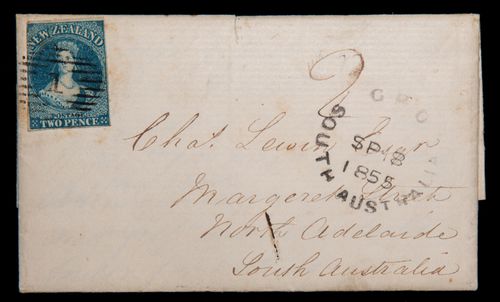 NEW ZEALAND
POSTAGE
TWO PENCE
2
GPO
SOUTH AUSTRALIA
SP 18
1855
Chas. Lewin
Margaret Street
North Adelaide
South Australia